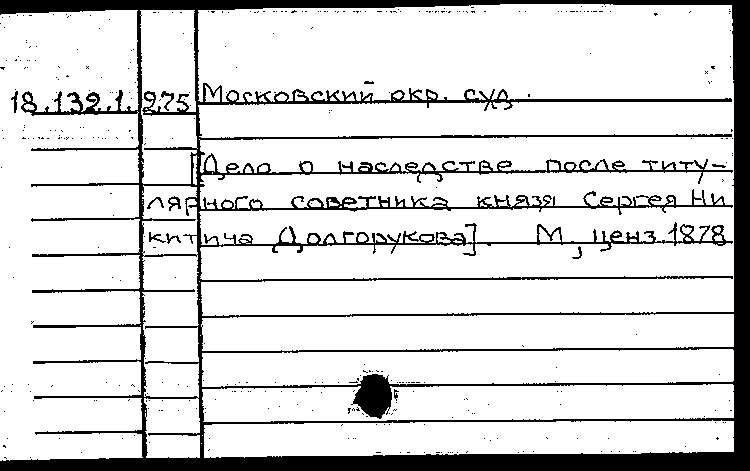 18.132.1.275 Московский окр. суд.
[Дело о наследстве после титу-
лярного советника князя Сергея Ни
китича Долгорукова]. М, ценз. 1878